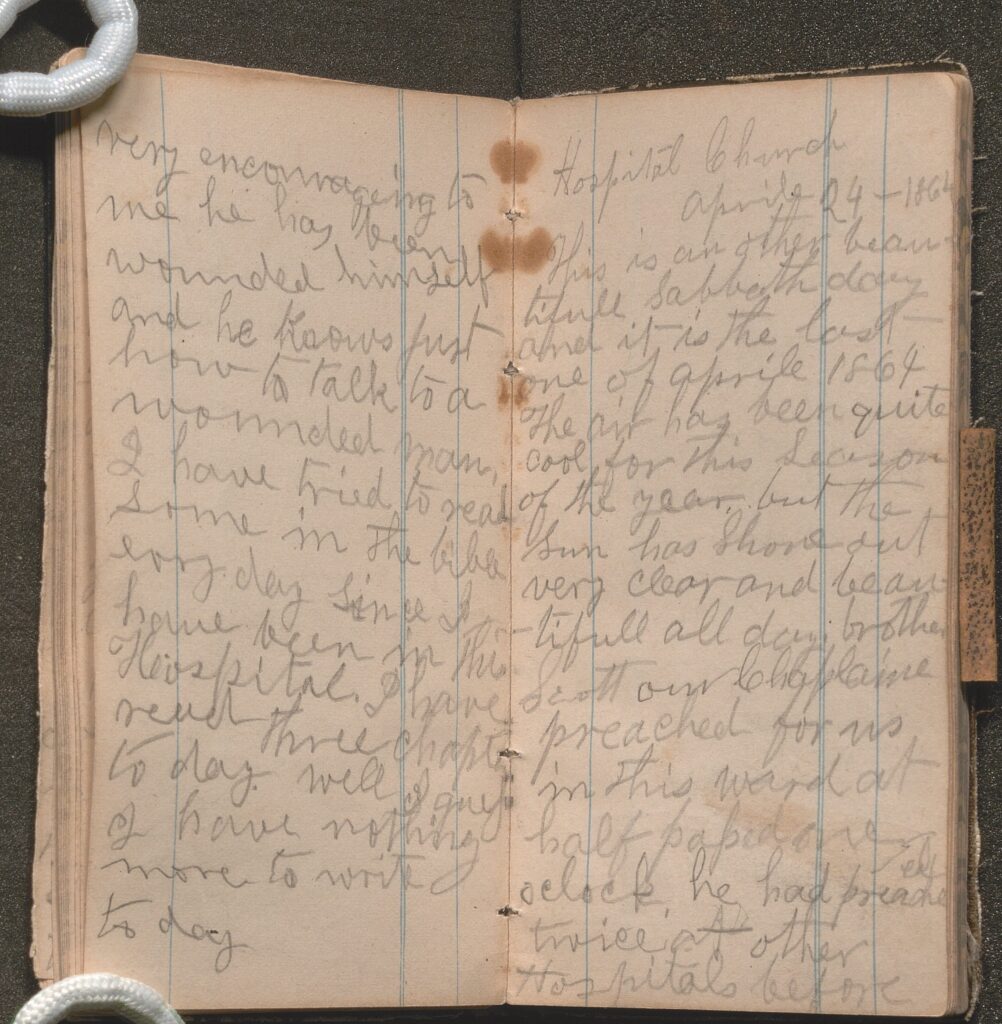 very encouraging to
me he has been
wounded himself
and he knows just
how to talk to a
wounded man,
I have tried to read
some in the bible
evry day since I
have been in this
Hospital. I have
read three chapt
to day. well I guess
I have nothing
more to write
to day
Hospital Church
aprile 24 - 1864
This is an other beau-
tifull Sabbath day
and it is the last
one of aprile 1864
The air has been quite
cool for this season
of the year, but the
sun has shone out
very clear and beau-
-tifull all day, brother
Scott our Chaplaine
preached for us
in this ward at
half pased one
oclock, he had preached
twice at other
Hospitals before